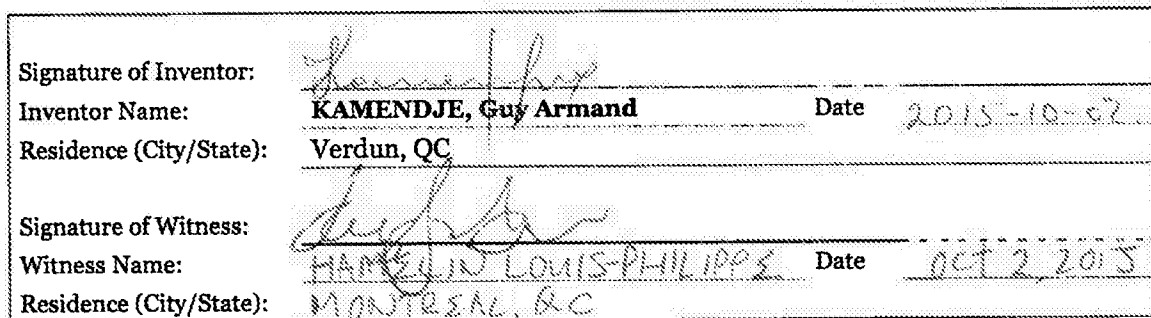 Signature of Inventor:
Inventor Name: KAMENDJE, Guy Armand Date 2015-10-02
Residence (City/State): Verdun, QC
Signature of Witness:
Witness Name: HAMELIN LOUIS-PHILIPPE Date OCT 2, 2015
Residence (City/State): MONTREAL, QC